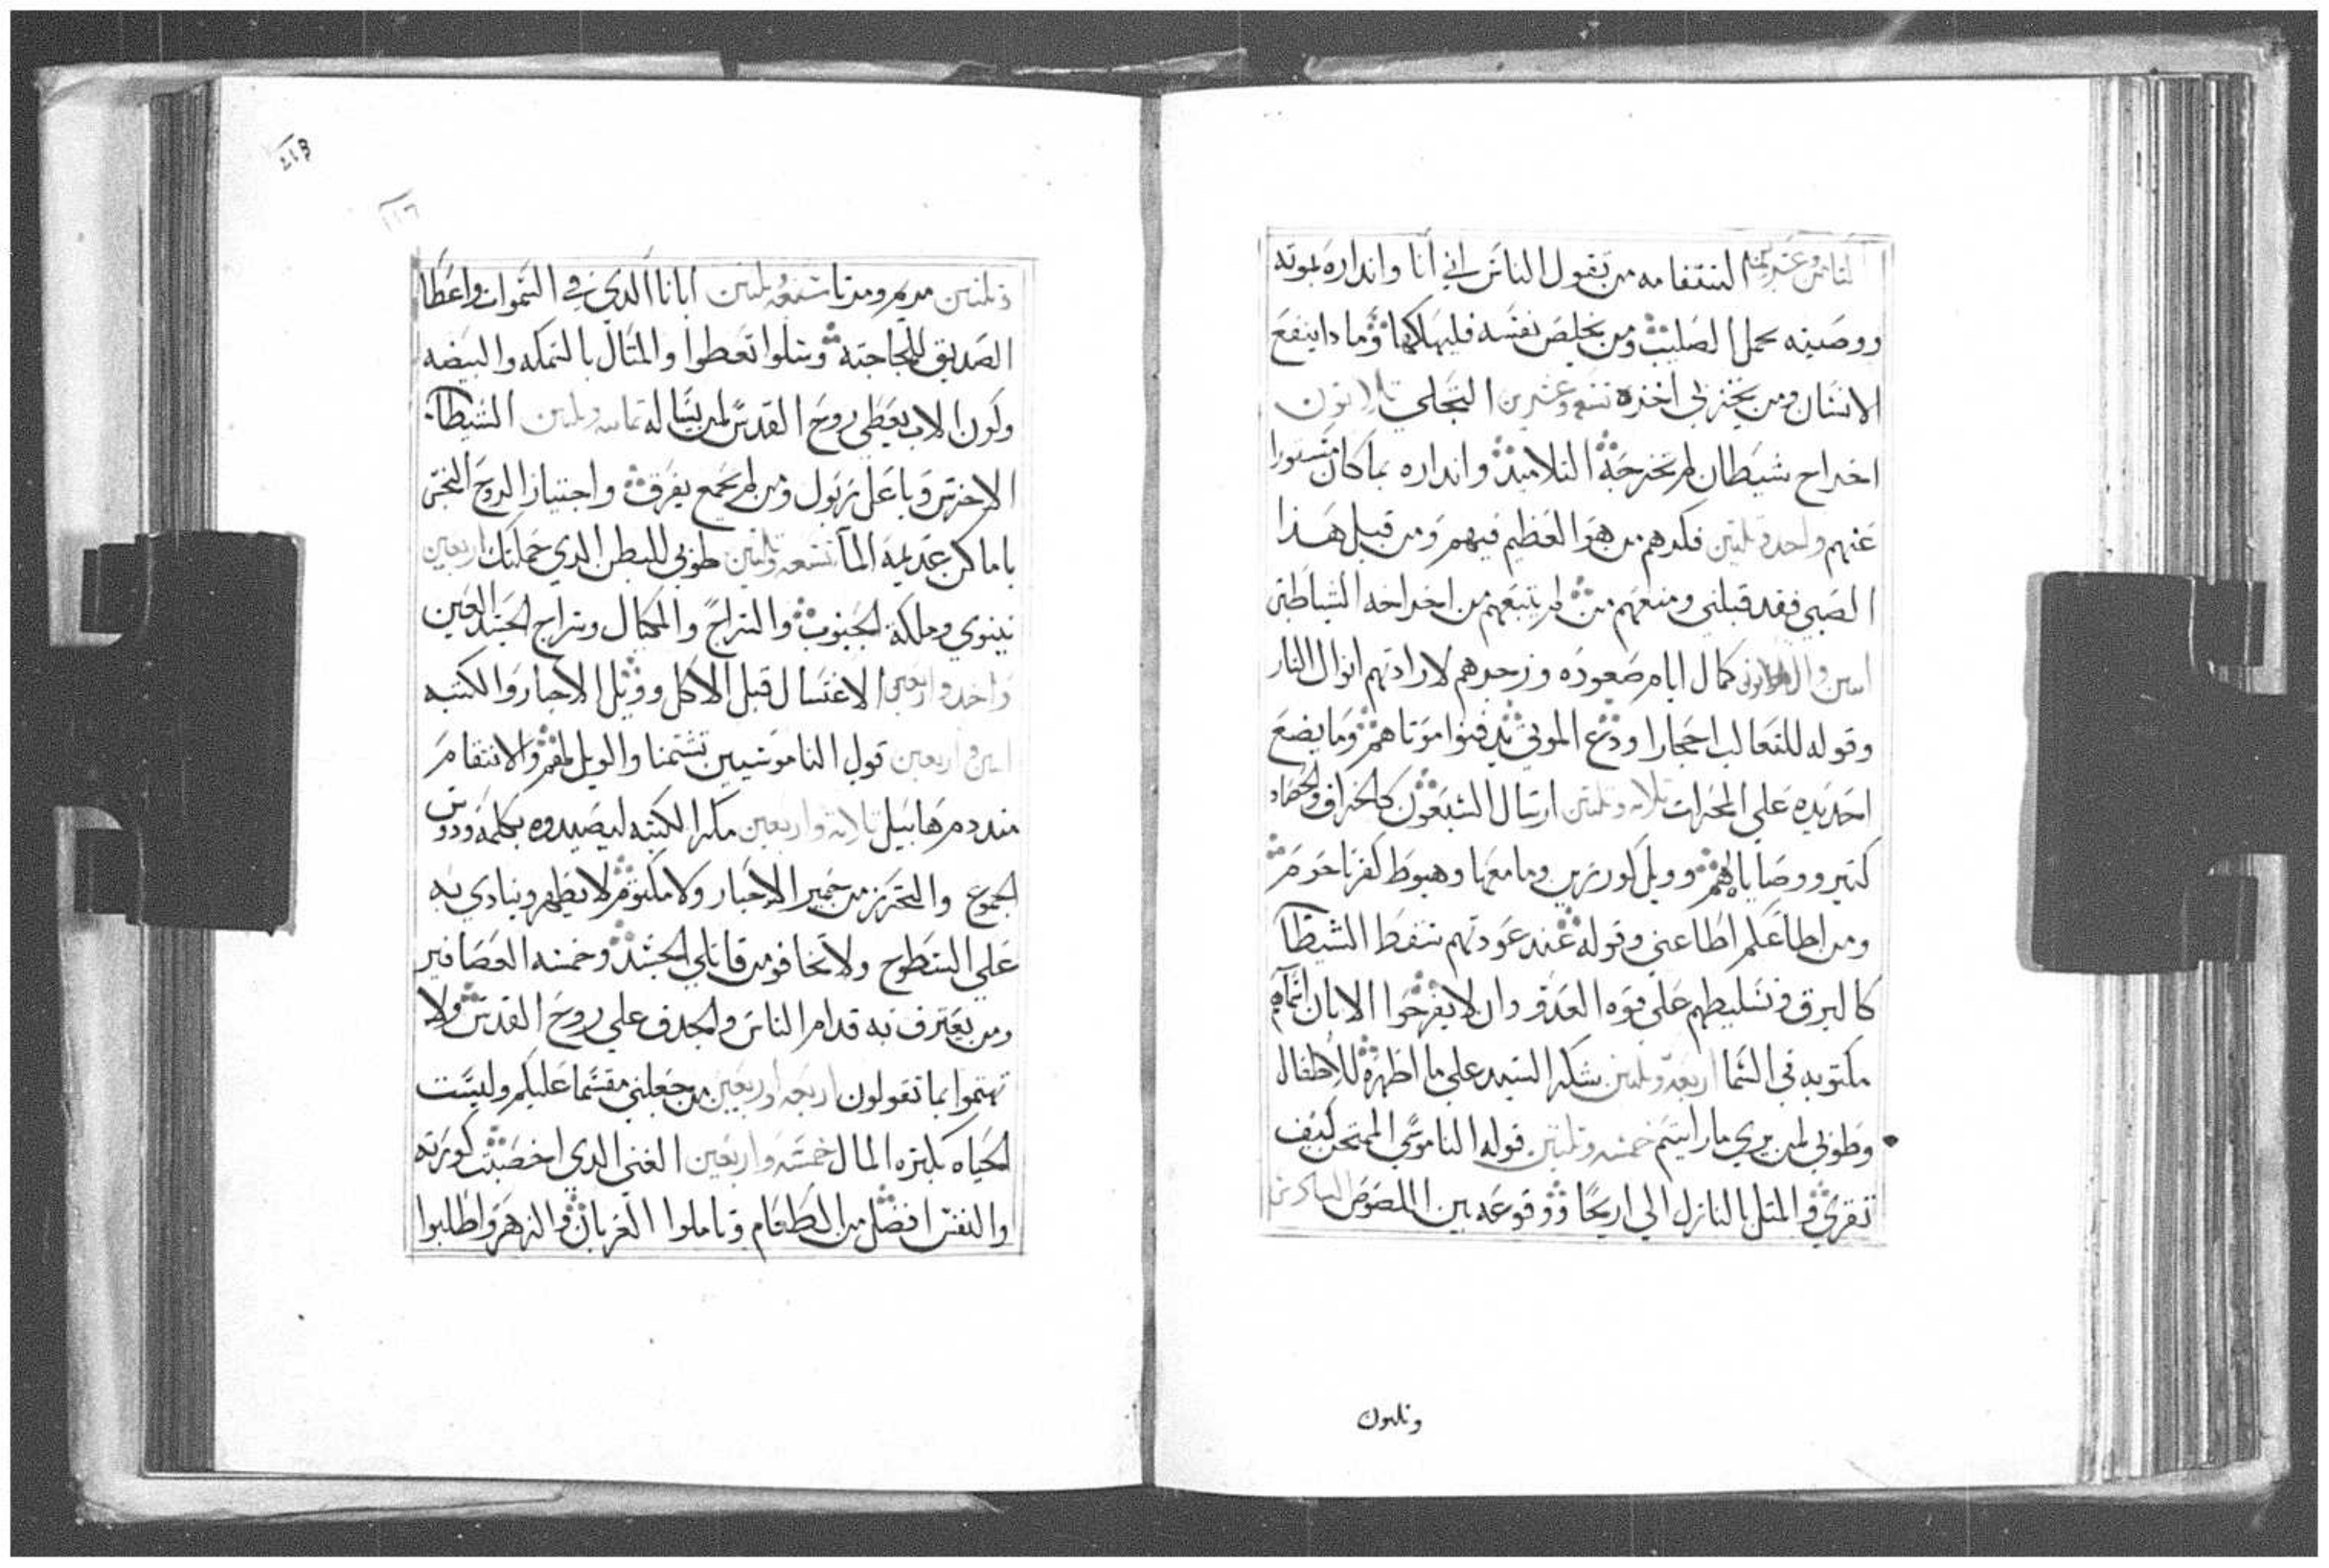 الثامن وعشرين استفهامه من تقول الناس اني انا وانداره بموته
ووصيته بحمل الصليب ومن يخلص نفسه فليهلكها وماداينفع
الانسان ومن يخزبي اخزه تسع وعشرين التجلي تلاتون
اخراج شيطان لم تخرجه التلاميد وانداره بما كان مستورا
عنهم واحد وتلتين فكرهم من هو العظيم فيهم ومن قبل هدا
الصبي فقد قبلني ومنعهم من لم يتبعهم من اخراجه الشياطين
كمال ايام صعوده وزجرهم لارادتهم انزال النار
وقوله للتعالب احجارا ودع الموتي يدفنوا موتاهم وما يضع
احد يده علي المحرات تلاته وتلتين ارسال السبعون كالخراف والحصاد
كتير ووصاياه لهم وويل كورزين وما معها وهبوط كفرناحوم
ومن اطاعكم اطاعني وقوله عند عودتهم سقط الشيطان
كالبرق وتسليطهم علي قوه العدو وان لا يفرحوا الا بان اسماهم
مكتوبه في السما اربعه وتلتين شكر السيد علي ما اظهره للاطفال
وطوبي لمن يري ما رايتم خمسه وتلتين قوله الناموسي الممتحن كيف
تقري والمتل بالنازل الي اريحا ووقوعه بين اللصوص
وتلتون
213
116
وتلتين مريم ومرتا سبعه وتلتين ابانا الدي في السموات واعطا
الصديق للجاجته وسلوا تعطوا والمتال بالسمكه والبيضه
وكون الاب يعطي روح القدس لمن يساله تمانيه وتلتين الشيطان
الاخرس وباعلزبول ومن لم يجمع يفرق واجتياز الروح النجس
باماكن عديمه الما تسعه وتلتين طوبي للبطن الدي حملتك اربعين
نينوي وملكة الجنوب والسراج والمكيال وسراج الجسد العين
واحد واربعين الاغتسال قبل الاكل وويل الاحبار والكتبه
اتنين واربعين قول الناموسيين تشتمنا والويل لهم والانتقام
مند دم هابيل تلاته واربعين مكر الكتبه ليصيدوه بكلمه ودوس
الجموع والتحرز من خمير الاحبار ولا مكتوم لا يظهر وينادي به
علي السطوح ولا تخافو من قاتلي الجسد وخمسه العصافير
ومن يعترف به قدام الناس والمجدف علي روح القدس ولا
تهتموا بما تقولون اربعه واربعين من جعلني مقسما عليكم وليست
الحياه بكتره المال خمسه واربعين الغني الدي اخصبت كورته
والنفس افضل من الطعام وتاملوا الغربان والزهر واطلبوا